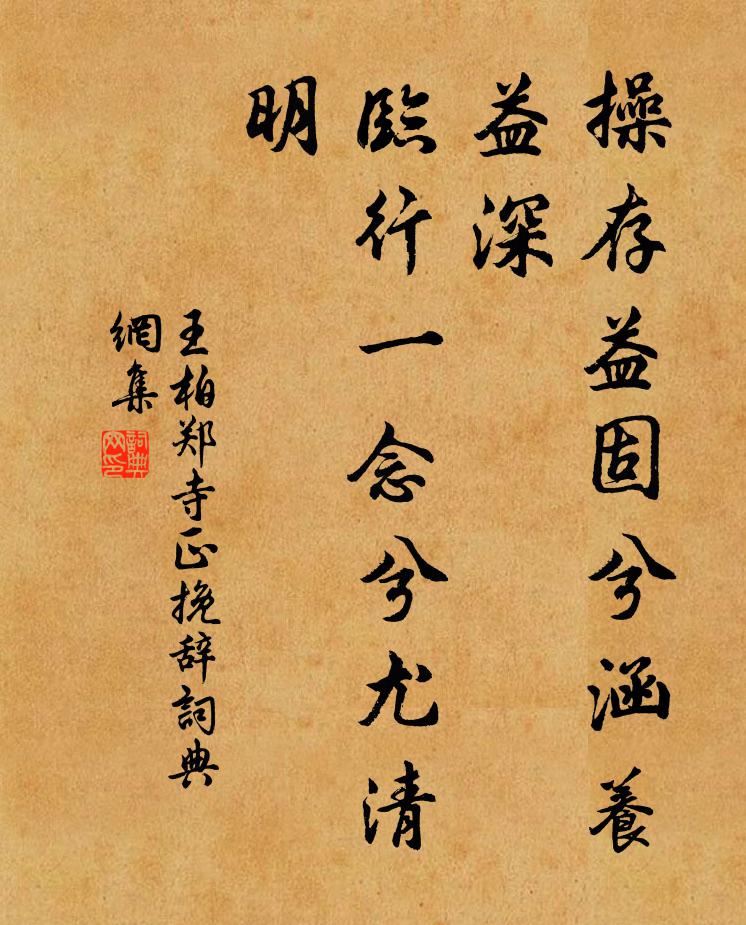 操存益固兮涵養
益深
臨行一念兮尤清
明
王柏郑寺正挽辞詞典
網集
詞典
网印